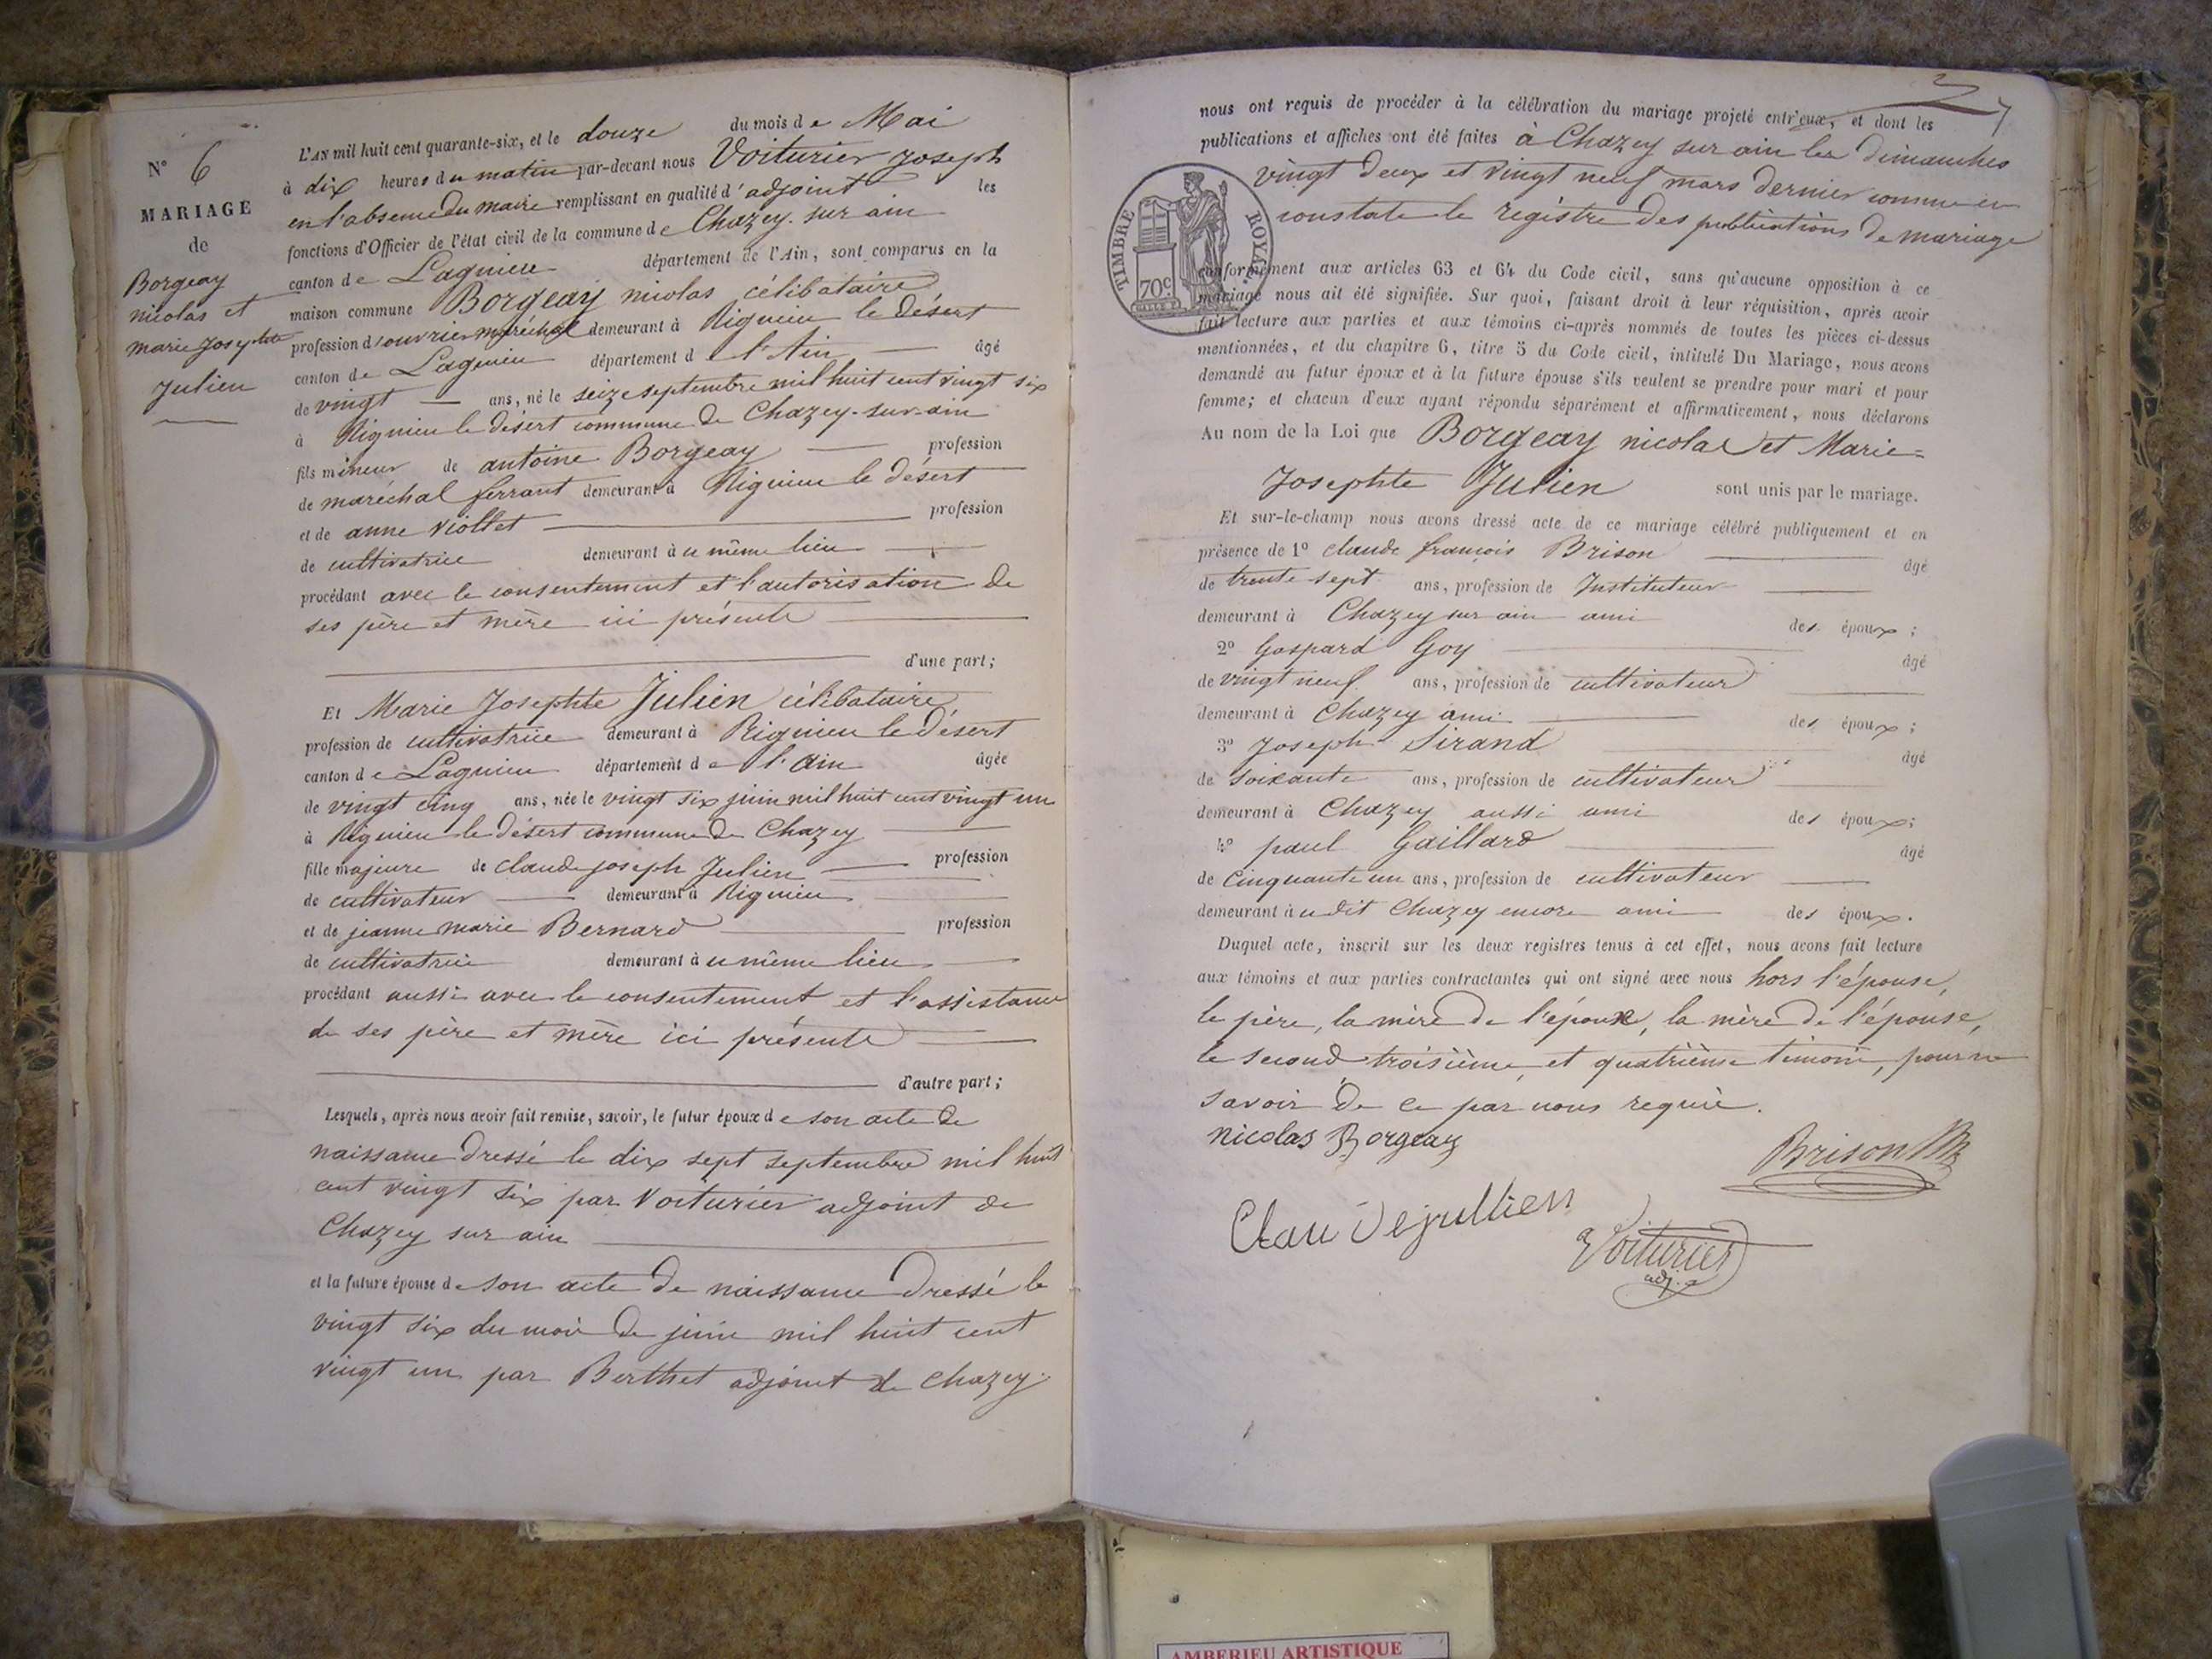 N° 6
MARIAGE
de
Borgeay
nicolas et
marie Josephte
Julien
L'AN mil huit cent quarante-six, et le douze du mois de Mai
à dix heures du matin par-devant nous Voiturier Joseph
en l'absence du maire remplissant en qualité d'adjoint les
fonctions d'Officier de l'état civil de la commune de Chazey-sur ain
canton de Lagnieu département de l'Ain, sont comparus en la
maison commune Borgeay nicolas célibataire
profession d'ouvrier maréchal demeurant à Rignieu le Désert
canton de Lagnieu département de l'Ain âgé
de vingt ans, né le seize septembre mil huit cent vingt six
à Rignieu le désert commune de Chazey-sur-ain
fils mineur de antoine Borgeay profession
de maréchal ferrant demeurant à Rignieu le désert
et de anne Viollet profession
de cultivatrice demeurant à ce même lieu
procédant avec le consentement et l'autorisation de
ses père et mère ici présents
d'une part;
Et Marie Josephte Julien célibataire
profession de cultivatrice demeurant à Rignieu le Désert
canton de Lagnieu département de l'Ain âgée
de vingt cinq ans, née le vingt six juin mil huit cent vingt un
à Rignieu le désert commune de Chazey
fille majeure de claude joseph Julien profession
de cultivateur demeurant à Rignieu
et de jeanne marie Bernard profession
de cultivatrice demeurant à ce même lieu
procédant aussi avec le consentement et l'assistance
de ses père et mère ici présents
d'autre part;
Lesquels, après nous avoir fait remise, savoir, le futur époux de son acte de
naissance dressé le dix sept septembre mil huit
cent vingt six par Voiturier adjoint de
Chazey sur ain
et la future épouse de son acte de naissance dressé le
vingt six du mois de juin mil huit cent
vingt un par Berthet adjoint de Chazey.
7
nous ont requis de procéder à la célébration du mariage projeté entr'eux, et dont les
publications et affiches ont été faites à Chazey sur ain les dimanches
vingt deux et vingt neuf mars dernier comme en
constate le registre des publications de mariage
TIMBRE ROYAL
70c
conformément aux articles 63 et 64 du Code civil, sans qu'aucune opposition à ce
mariage nous ait été signifiée. Sur quoi, faisant droit à leur réquisition, après avoir
fait lecture aux parties et aux témoins ci-après nommés de toutes les pièces ci-dessus
mentionnées, et du chapitre 6, titre 5 du Code civil, intitulé Du Mariage, nous avons
demandé au futur époux et à la future épouse s'ils veulent se prendre pour mari et pour
femme; et chacun d'eux ayant répondu séparément et affirmativement, nous déclarons
Au nom de la Loi que Borgeay nicolas et Marie=
Josephte Julien sont unis par le mariage.
Et sur-le-champ nous avons dressé acte de ce mariage célébré publiquement et en
présence de 1° claude françois Brison âgé
de trente sept ans, profession de Instituteur
demeurant à Chazey sur ain ami des époux;
2° Gaspard Goy âgé
de vingt neuf ans, profession de cultivateur
demeurant à Chazey ami des époux;
3° Joseph Sirand âgé
de soixante ans, profession de cultivateur
demeurant à Chazey aussi ami des époux;
4° paul Gaillard âgé
de cinquante un ans, profession de cultivateur
demeurant à ce dit Chazey encore ami des époux.
Duquel acte, inscrit sur les deux registres tenus à cet effet, nous avons fait lecture
aux témoins et aux parties contractantes qui ont signé avec nous hors l'épouse,
le père, la mère de l'époux, la mère de l'épouse,
le second troisième, et quatrième témoin, pour ne
savoir de ce par nous requis.
nicolas Borgeay
Brison
Claudejullien
Voiturier
adj.
AMBERIEU ARTISTIQUE